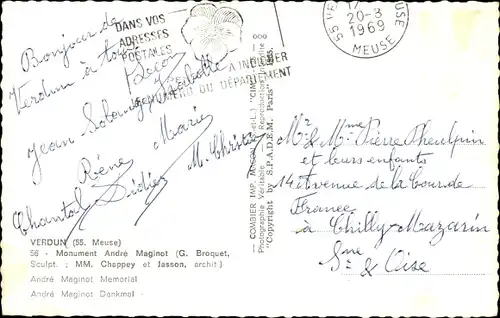 DANS VOS
ADRESSES
POSTALES
A INDIQUER
NUMERO DU DEPARTEMENT
17
20-8
1969
55 VE
MEUSE
MEUSE
Bonjour de
Verdun à tous
Jean
Isabelle
Rène Marie
Chantal Didier M. Christ
VERDUN (55. Meuse)
56 - Monument André Maginot (G. Broquet,
Sculpt. ; MM. Chappey et Jasson, archit)
André Maginot Memorial
André Maginot Denkmal -
COMBIER IMP. MACON (S.-L.) "CIM"
Photographie Véritable - Reproduction Interdite
"Copyright by S.P.A.D.E.M. Paris" 1965.
Mr & Mme Pierre Pheulpin
et leurs enfants
14 Avenue de la Cour de
France
à Chilly-Mazarin
Sne
& Oise